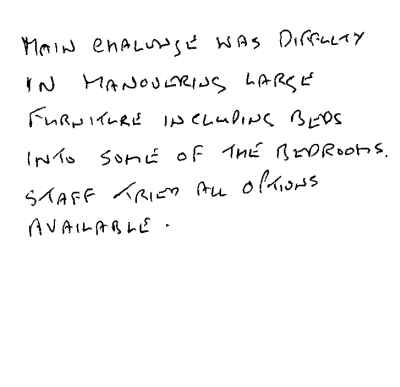 MAIN CHALUNGE WAS DIFFULTY
IN MANOUERING LARGE
FURNITURE INCLUDING BEDS
INTO SOME OF THE BEDROOMS.
STAFF TRIED ALL OPTIONS
AVAILABLE.